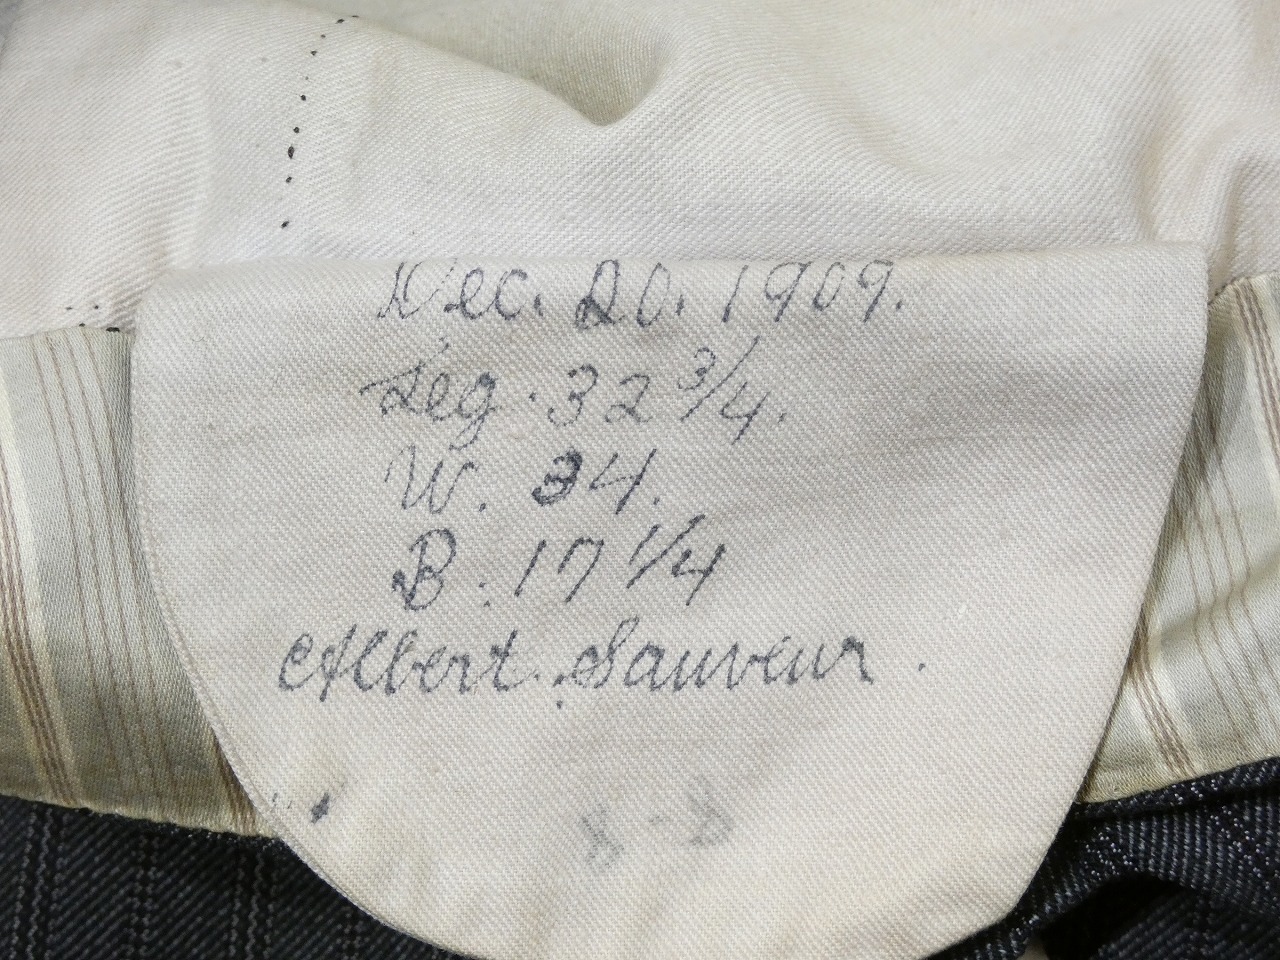 Dec. 20. 1909.
Leg. 32 3/4.
W. 34.
B. 17 1/4
Albert. Sauveur.